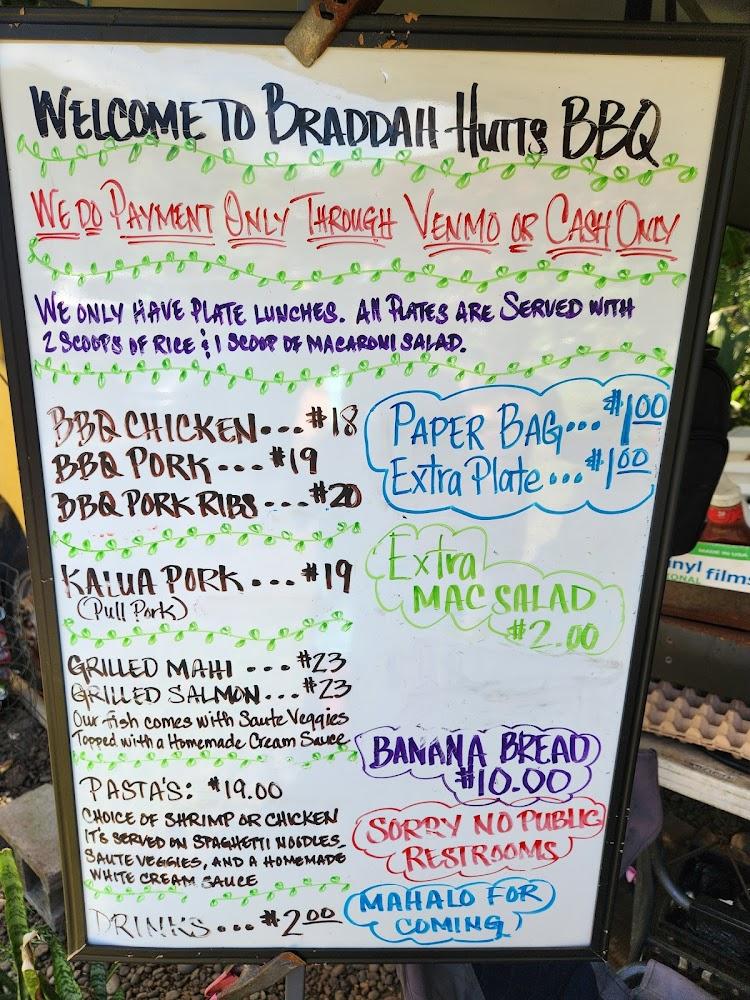 WELCOME TO BRADDAH HUTTS BBQ
WE DO PAYMENT ONLY THROUGH VENMO OR CASH ONLY
WE ONLY HAVE PLATE LUNCHES. All PLATES ARE SERVED WITH
2 SCOOPS OF RICE & 1 SCOOP OF MACARONI SALAD.
BBQ CHICKEN...$18
BBQ PORK...$19
BBQ PORK RIBS...$20
KALUA PORK...$19
(Pull Pork)
GRILLED MAHI...$23
GRILLED SALMON...$23
Our fish comes with Saute Veggies
Topped with a Homemade Cream Sauce
PASTA'S: $19.00
CHOICE OF SHRIMP OR CHICKEN
IT'S SERVED ON SPAGHETTI NOODLES,
SAUTE VEGGIES, AND A HOMEMADE
WHITE CREAM SAUCE
DRINKS...$2.00
PAPER BAG...$1.00
Extra Plate...$1.00
Extra
MAC SALAD
$2.00
BANANA BREAD
$10.00
SORRY NO PUBLIC
RESTROOMS
MAHALO FOR
COMING
MADE IN USA
films